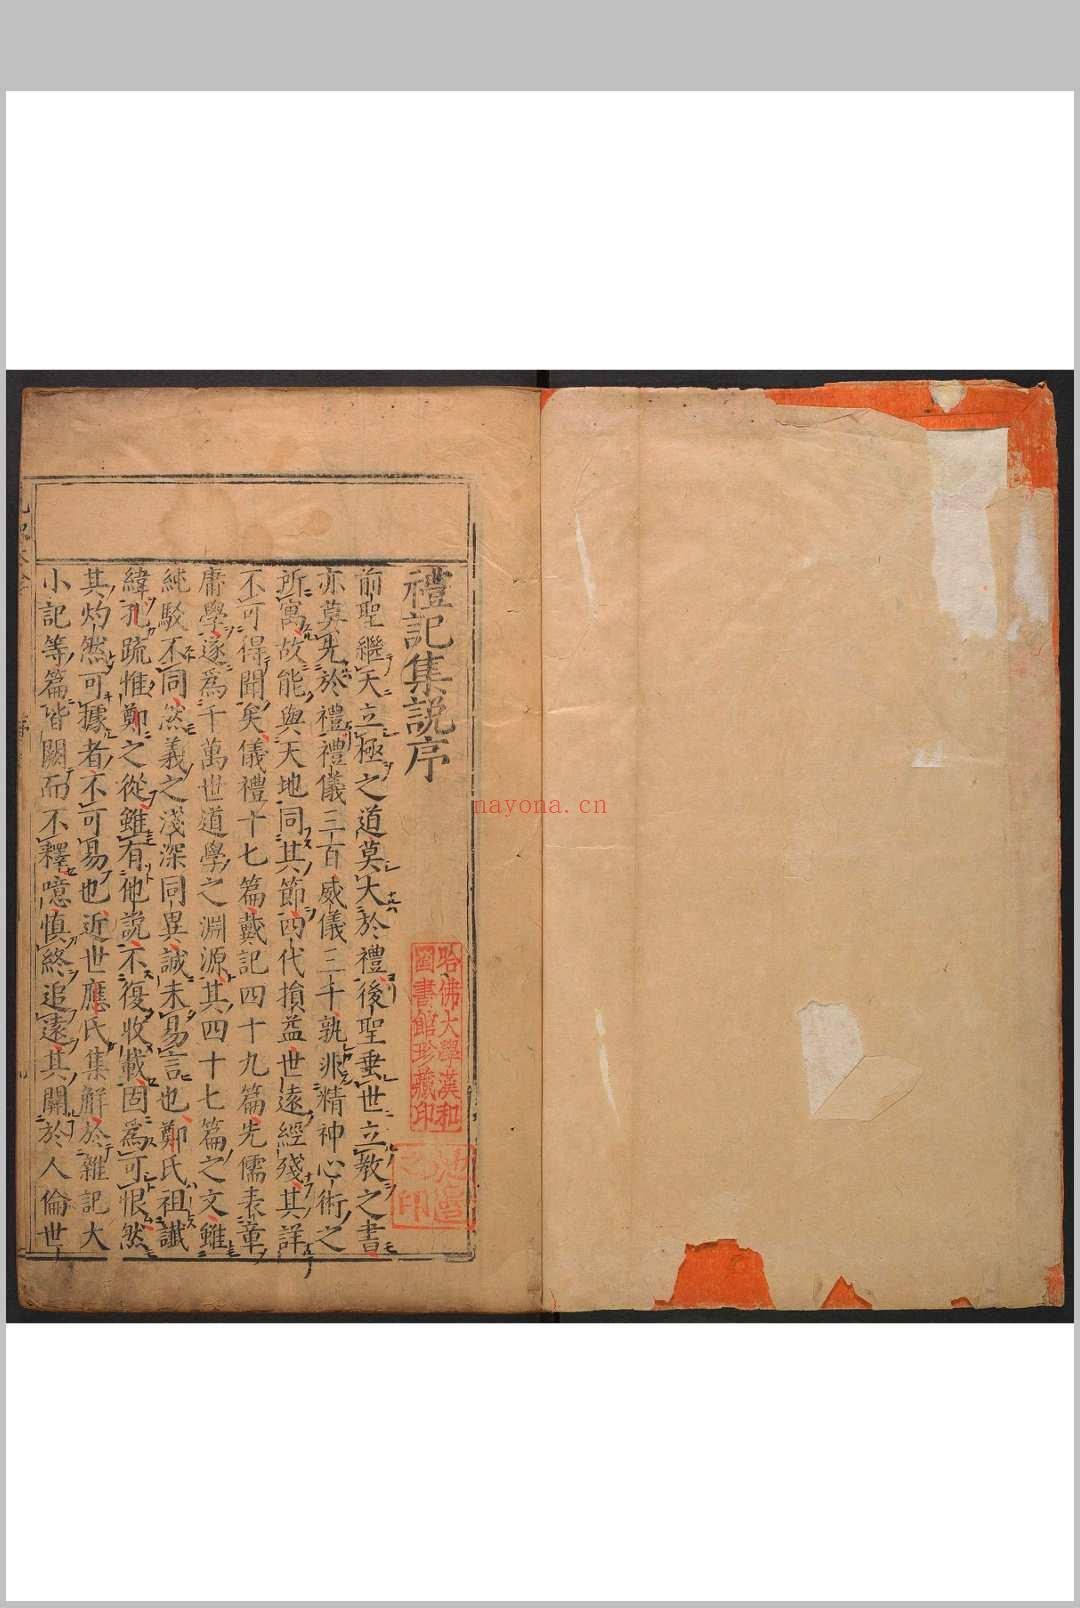 禮記集説序
前聖繼天立極之道莫大於禮後聖垂世立教之書
亦莫先於禮禮儀三百威儀三千孰非精神心術之
所寓故能與天地同其節四代損益世遠經殘其詳
不可得聞矣儀禮十七篇戴記四十九篇先儒表章
庸學遂爲千萬世道學之淵源其四十七篇之文雖
純駁不同然義之淺深同異誠未易言也鄭氏祖讖
緯孔疏惟鄭之從雖有他説不復收載固爲可恨然
其灼然可據者不可易也近世應氏集解於雜記大
小記等篇皆闕而不釋噫慎終追遠其關於人倫世
哈佛大學漢和
圖書館珍藏印
nayona.cn